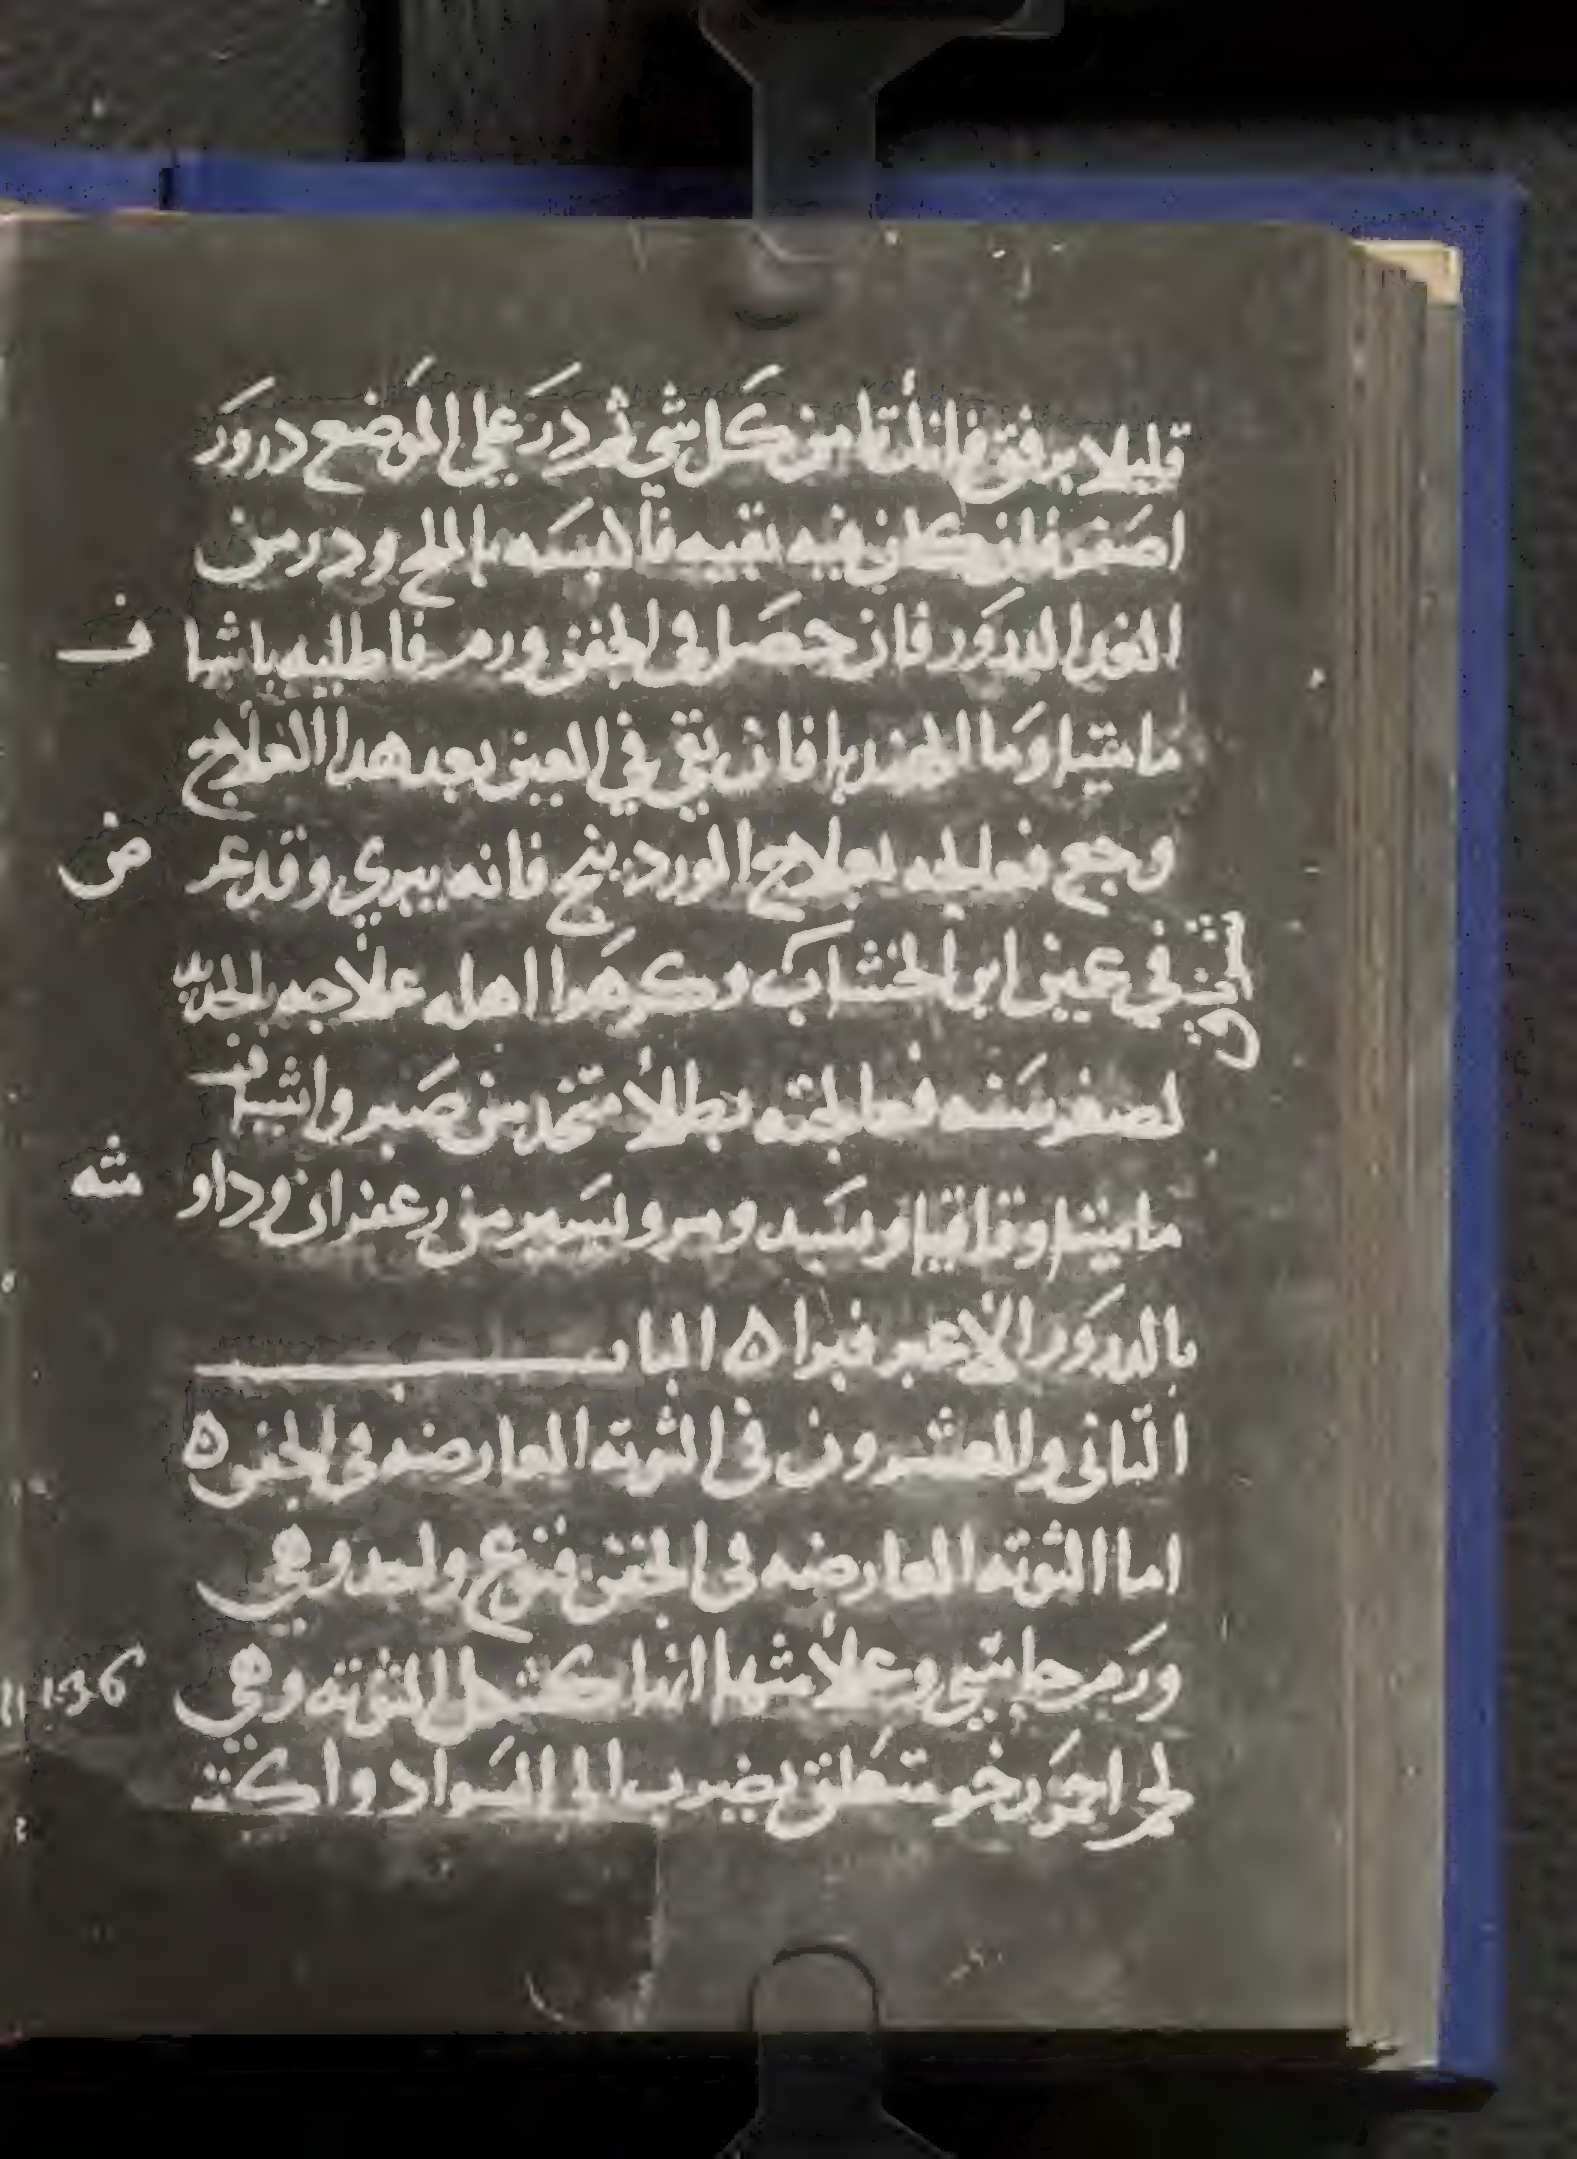 قليلا برفق فاذا نتا من كل شي ثم در على الموضع درور
اصفر فان كان فيه بقيه فالبسه بالملح ودر من
الغد الدرور فان حصل في الجفن ورم فاطليه باشيا ف
ماميثا وما الهندبا فان بقي في العين بعد هدا العلاج
وجع فعليه بعلاج الوردينج فانه يبري وقد عر ض
في عين ابن الخشاب وكرهوا اهله علاجه بالحديد
لصغر سنه فعالجته بطلا متخد من صبر واشياف
ماميثا وقاقيا ومر ويسير من زعفران وداو يته
بالدرور الاغبر فبرا ه الباب
الثاني والعشرون في التوته العارضه في الجفن ه
اما التوته العارضه في الجفن فنوع واحد وهي
ورم جاسي وعلامتها انها كشكل التوته وهي
لحم احمر رخو متعلق يضرب الى السواد واكثر
136